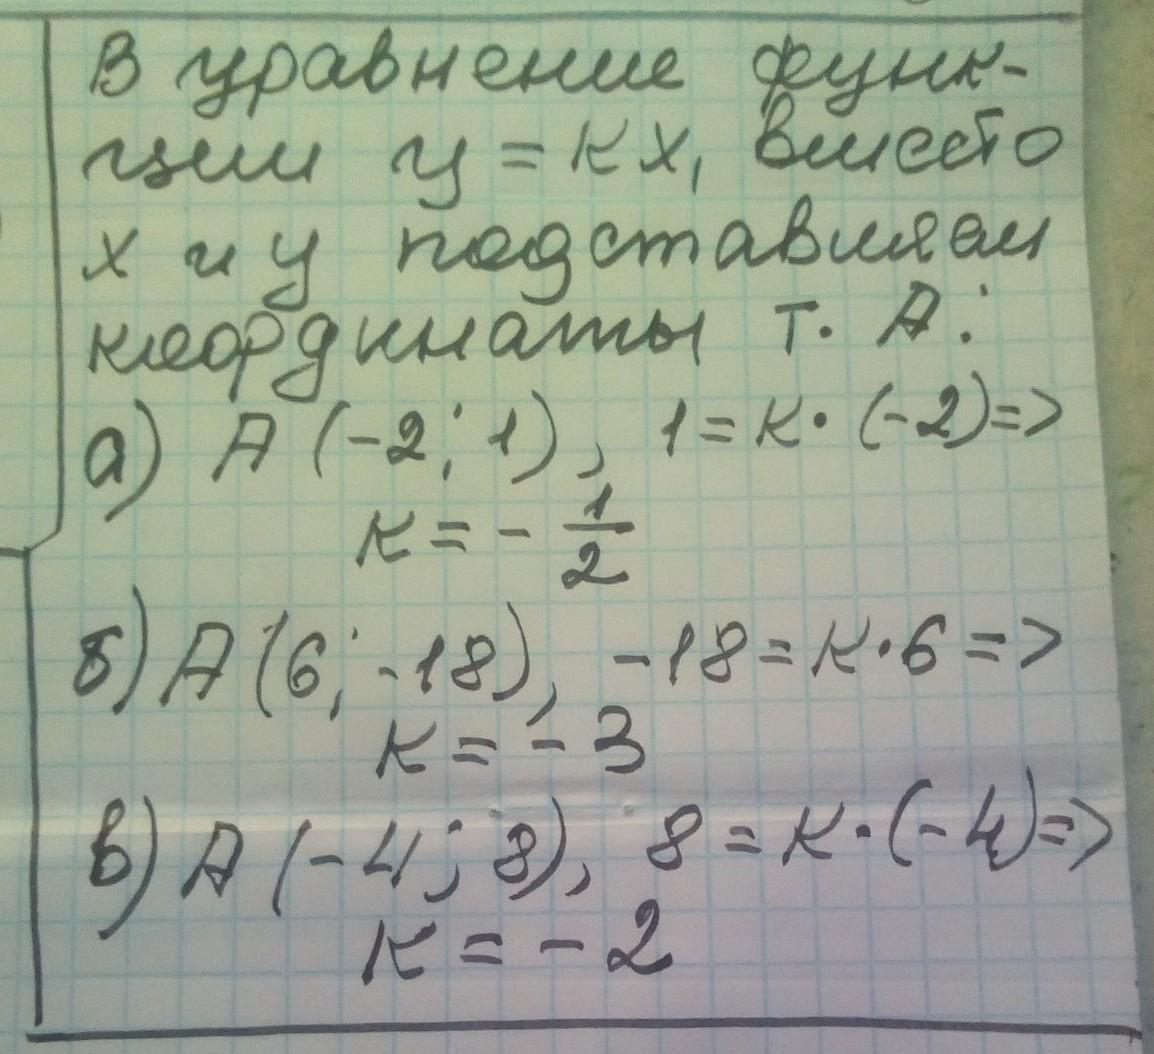 В уравнение функ-
ции y = kx, вместо
x и y подставляем
координаты т. A:
а) A (-2; 1), 1 = k · (-2) =>
k = - 1/2
б) A (6; -18), -18 = k · 6 =>
k = - 3
в) A (-4; 8), 8 = k · (-4) =>
k = - 2